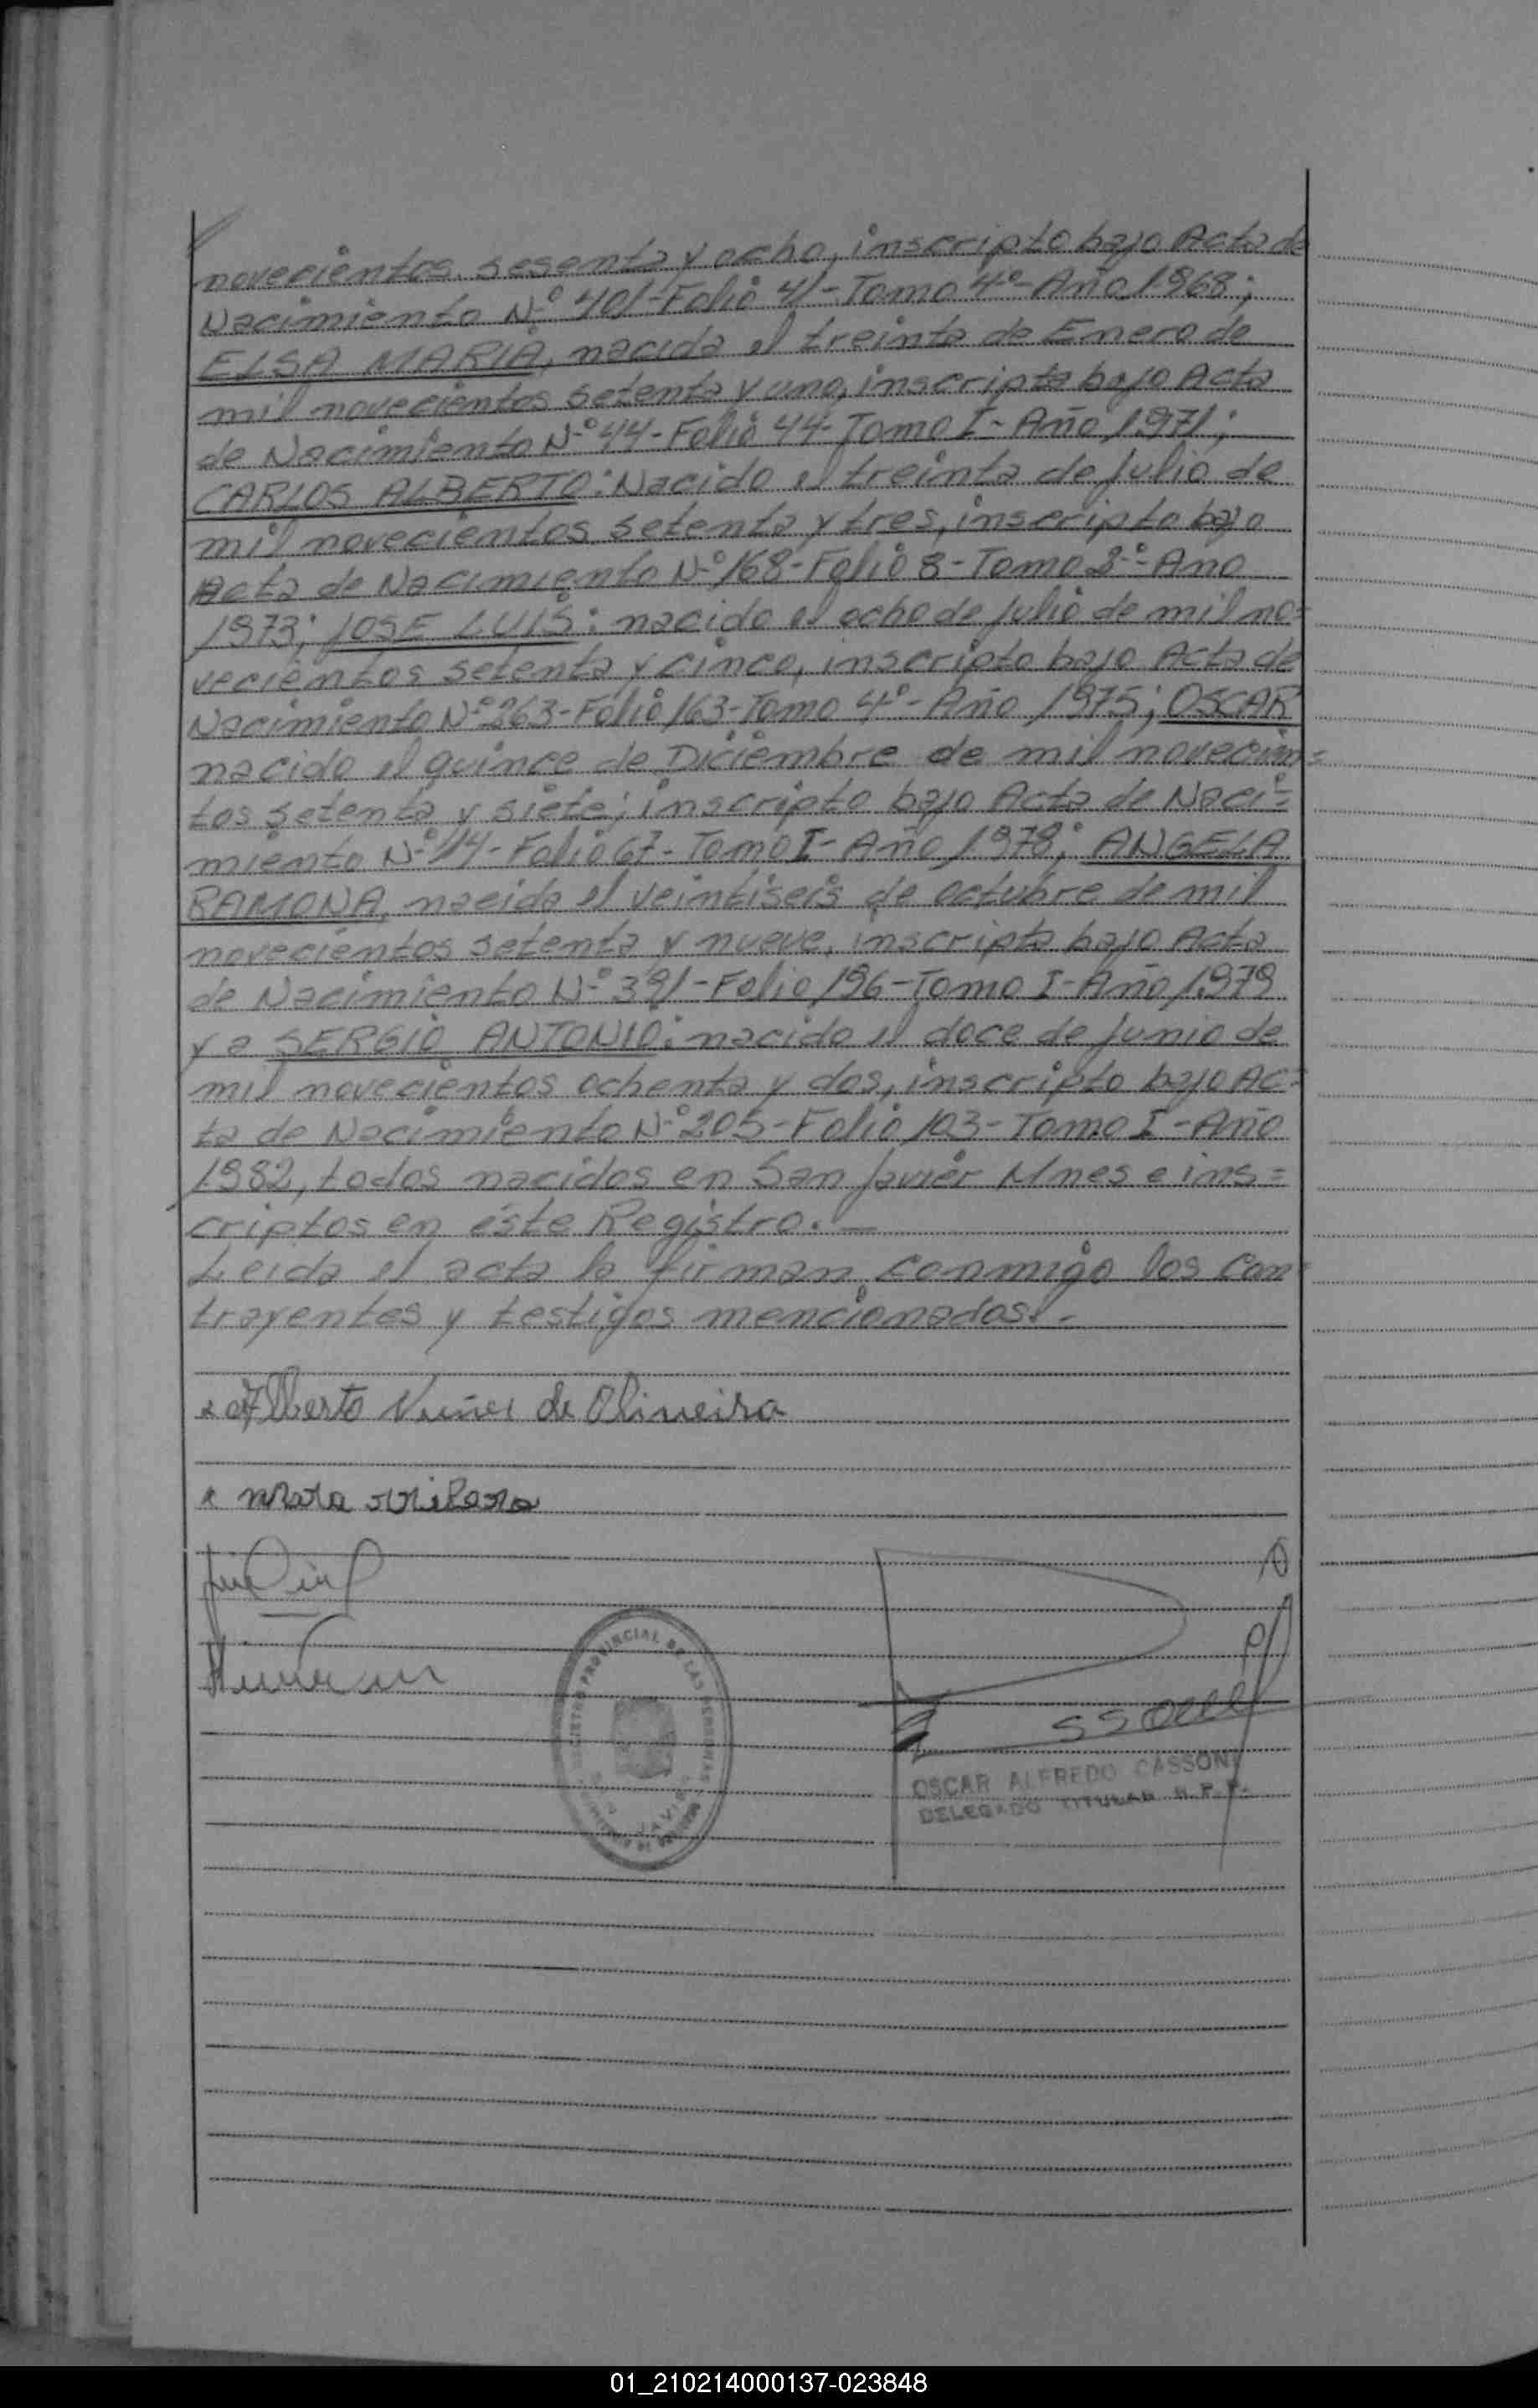 novecientos sesenta y ocho, inscripto bajo Acta de
Nacimiento Nº 401-Folio 41-Tomo 4º-Año 1968;
ELSA MARIA, nacida el treinta de Enero de
mil novecientos setenta y uno, inscripta bajo Acta
de Nacimiento Nº 44-Folio 44-Tomo I-Año 1.971;
CARLOS ALBERTO: Nacido el treinta de Julio de
mil novecientos setenta y tres, inscripto bajo
Acta de Nacimiento Nº 168-Folio 8-Tomo 2º-Año
1973; JOSE LUIS: nacido el ocho de Julio de mil no=
vecientos setenta y cinco, inscripto bajo Acta de
Nacimiento Nº 363-Folio 163-Tomo 4º-Año 1975; OSCAR
nacido el quince de Diciembre de mil novecien=
tos setenta y siete; inscripto bajo Acta de Naci=
miento Nº 114-Folio 67-Tomo I-Año 1978; ANGELA
RAMONA, nacida el veintiseis de octubre de mil
novecientos setenta y nueve, inscripta bajo Acta
de Nacimiento Nº 391-Folio 196-Tomo I-Año 1.979
y a SERGIO ANTONIO: nacido el doce de Junio de
mil novecientos ochenta y dos, inscripto bajo Ac=
ta de Nacimiento Nº 205-Folio 103-Tomo I-Año
1982, todos nacidos en San Javier Mnes e ins=
criptos en éste Registro.-
Leida el acta la firman conmigo los con=
trayentes y testigos mencionados.-
Alberto Nuñes de Oliveira
REGISTRO PROVINCIAL DE LAS PERSONAS
OSCAR ALFREDO CASSONI
DELEGADO TITULAR R.P.P.
01_210214000137-023848